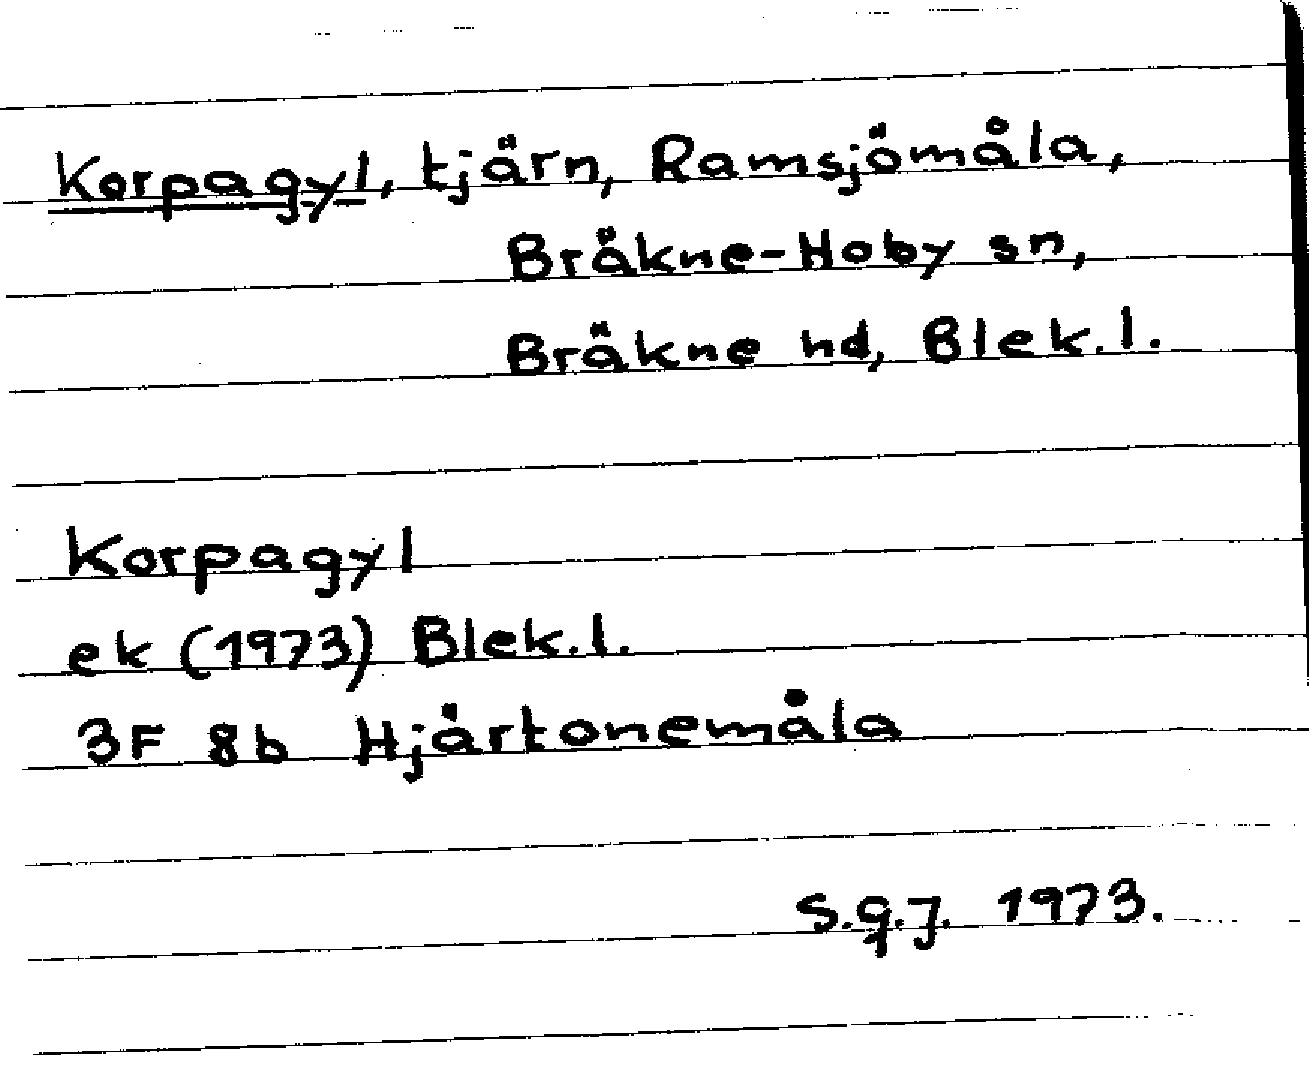 Korpagyl, tjärn, Ramsjömåla,
Bräkne-Hoby sn,
Bräkne hd, Blek.l.
Korpagyl
ek (1973) Blek.l.
3F 8b Hjärtonemåla
S.g.J. 1973.